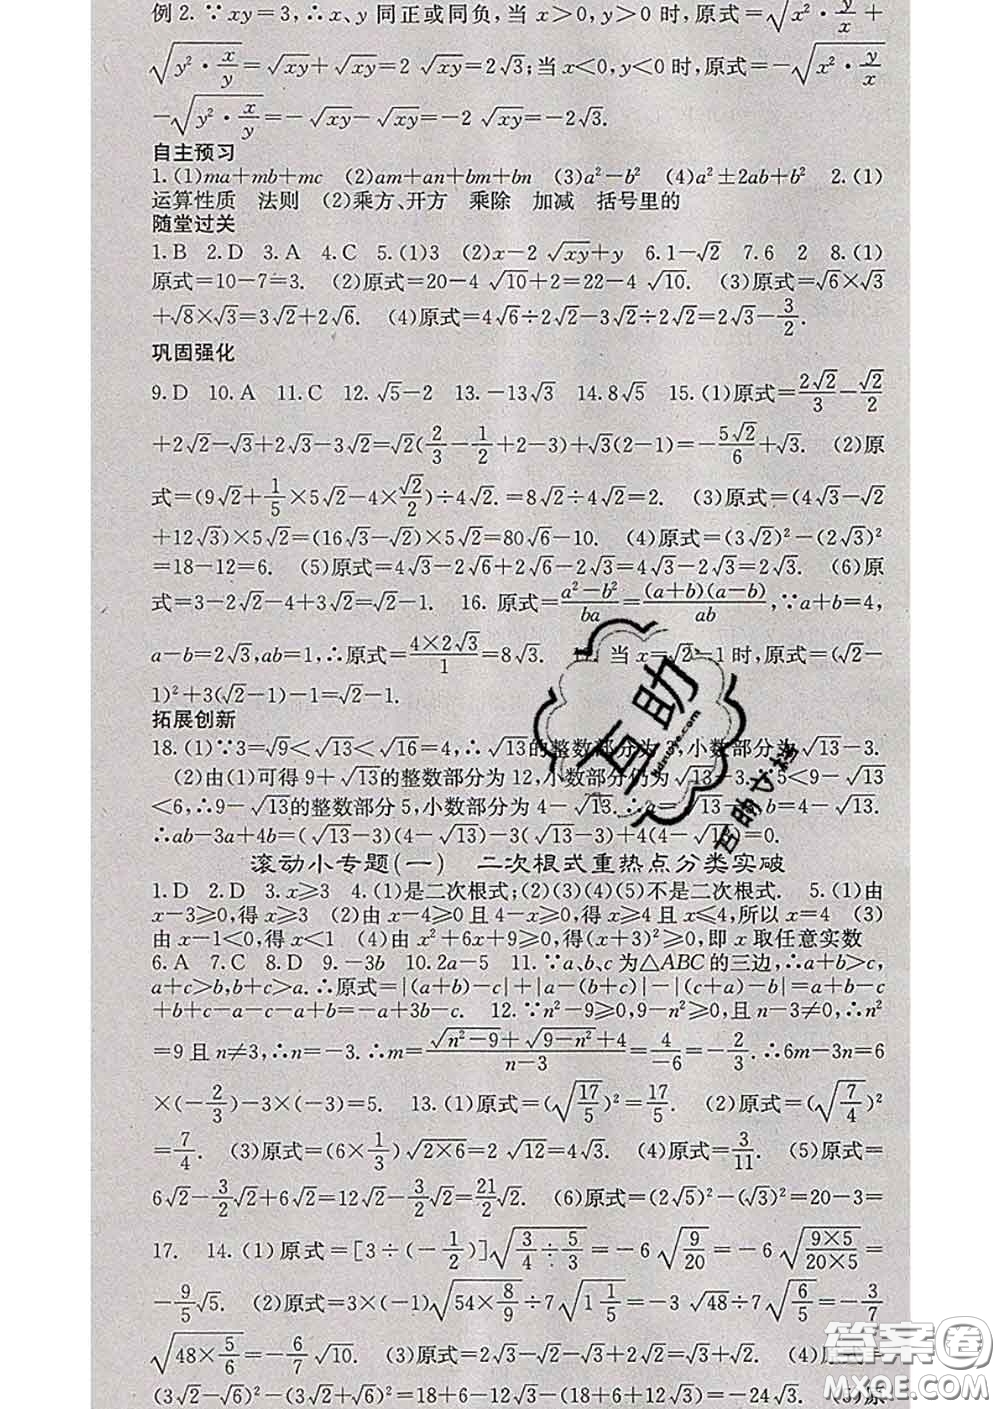 例2. ∵xy=3,∴x、y同正或同负,当x>0,y>0时,原式=√(x²·y/x)+
√(y²·x/y)=√xy+√xy=2√xy=2√3;当x<0,y<0时,原式=-√(x²·y/x)
-√(y²·x/y)=-√xy-√xy=-2√xy=-2√3.
自主预习
1.(1)ma+mb+mc (2)am+an+bm+bn (3)a²-b² (4)a²±2ab+b² 2.(1)
运算性质 法则 (2)乘方、开方 乘除 加减 括号里的
随堂过关
1.B 2.D 3.A 4.C 5.(1)3 (2)x-2√xy+y 6.1-√2 7.6 2 8.(1)
原式=10-7=3. (2)原式=20-4√10+2=22-4√10. (3)原式=√6×√3
+√8×√3=3√2+2√6. (4)原式=4√6÷2√2-3√2÷2√2=2√3-3/2.
巩固强化
9.D 10.A 11.C 12.√5-2 13.-13√3 14.8√5 15.(1)原式=2√2/3-√2/2
+2√2-√3+2√3-3√2=√2(2/3-1/2+2-3)+√3(2-1)=-5√2/6+√3. (2)原
式=(9√2+1/5×5√2-4×√2/2)÷4√2.=8√2÷4√2=2. (3)原式=(4√3-√2
+12√3)×5√2=(16√3-√2)×5√2=80√6-10. (4)原式=(3√2)²-(2√3)²
=18-12=6. (5)原式=4√3-2√6+2√6-2√3=4√3-2√3=2√3. (6)原
式=3-2√2-4+3√2=√2-1. 16. 原式=(a²-b²)/ba=(a+b)(a-b)/ab,∵a+b=4,
a-b=2√3,ab=1,∴原式=4×2√3/1=8√3. 当x=√2-1时,原式=(√2-
1)²+3(√2-1)-1=√2-1.
拓展创新
18.(1)∵3=√9<√13<√16=4,∴√13的整数部分为3,小数部分为√13-3.
(2)由(1)可得9+√13的整数部分为12,小数部分仍为√13-3. 5<9-√13
<6,∴9-√13的整数部分5,小数部分为4-√13.∴a=√13-3,b=4-√13.
∴ab-3a+4b=(√13-3)(4-√13)-3(√13-3)+4(4-√13)=0.
滚动小专题(一) 二次根式重热点分类实破
1.D 2.D 3.x≥3 4.(1)是二次根式;(2)(3)(4)(5)不是二次根式. 5.(1)由
x-3≥0,得x≥3 (2)由x-4≥0且4-x≥0,得x≥4且x≤4,所以x=4 (3)
由x-1<0,得x<1 (4)由x²+6x+9≥0,得(x+3)²≥0,即x取任意实数
6.A 7.C 8.D 9.-3b 10.2a-5 11.∵a、b、c为△ABC的三边,∴a+b>c,
a+c>b,b+c>a.∴原式=|(a+b)-c|+|a-(b+c)|-|(c+a)-b|=a+b-c
+b+c-a-c-a+b=-a+3b-c. 12.∵n²-9≥0,9-n²≥0,且n-3≠0,∴n²
=9且n≠3,∴n=-3.∴m=(√(n²-9)+√(9-n²)+4)/(n-3)=4/-6=-2/3.∴6m-3n=6
×(-2/3)-3×(-3)=5. 13.(1)原式=(√(17/5))²=17/5. (2)原式=(√(7/4))²
=7/4. (3)原式=(6×1/3)√(2×6)=2√12=4√3. (4)原式=3/11. (5)原式=
6√2-3/2√2+6√2=12√2-3/2√2=21/2√2. (6)原式=(2√5)²-(√3)²=20-3=
17. 14.(1)原式=[3÷(-1/2)]√(3/4÷5/3)=-6√(9/20)=-6√(9×5/20×5)=
-9/5√5. (2)原式=3×(-1)√(54×8/9)÷7√(1 1/5)=-3√48÷7√(6/5)=-3/7
√(48×5/6)=-6/7√10. (3)原式=2√3-√3+√2=√3+√2. (4)原式=
(3√2-√6)²-(3√2+√6)²=18+6-12√3-(18+6+12√3)=-24√3. (5)原
互助
互助文档
答案圈